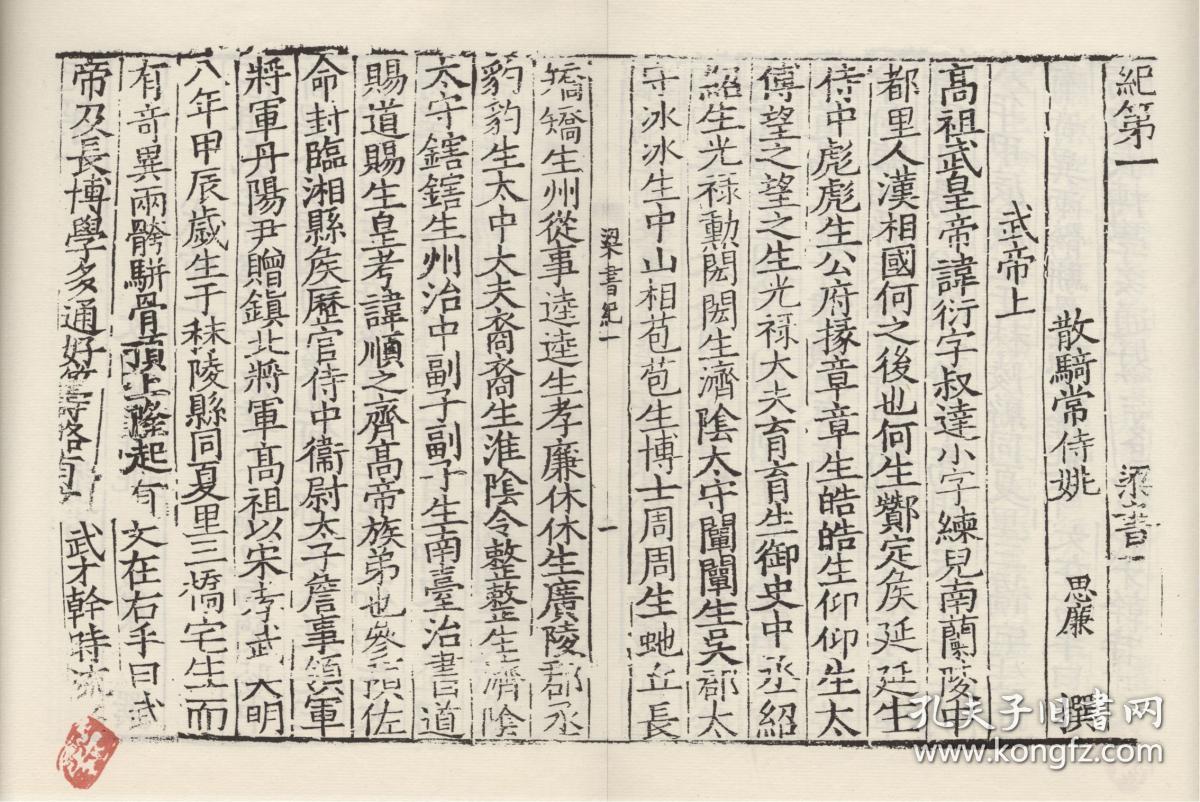 紀第一 梁書一
散騎常侍姚 思廉 撰
武帝上
高祖武皇帝諱衍字叔達小字練兒南蘭陵中
都里人漢相國何之後也何生酇定侯延延生
侍中彪彪生公府掾章章生皓皓生仰仰生太
傅望之望之生光祿大夫育育生御史中丞紹
紹生光祿勳閎閎生濟陰太守闡闡生吳郡太
守冰冰生中山相苞苞生博士周周生虵丘長
梁書紀一 一
矯矯生州從事逵逵生孝廉休休生廣陵郡丞
豹豹生太中大夫裔裔生淮陰令整整生濟陰
太守鎋鎋生州治中副子副子生南臺治書道
賜道賜生皇考諱順之齊高帝族弟也參預佐
命封臨湘縣侯歷官侍中衞尉太子詹事領軍
將軍丹陽尹贈鎮北將軍高祖以宋孝武大明
八年甲辰歲生于秣陵縣同夏里三橋宅生而
有奇異兩骻駢骨頂上隆起有文在右手曰武
帝及長博學多通好籌略有武才幹時流
孔夫子旧书网
www.kongfz.com